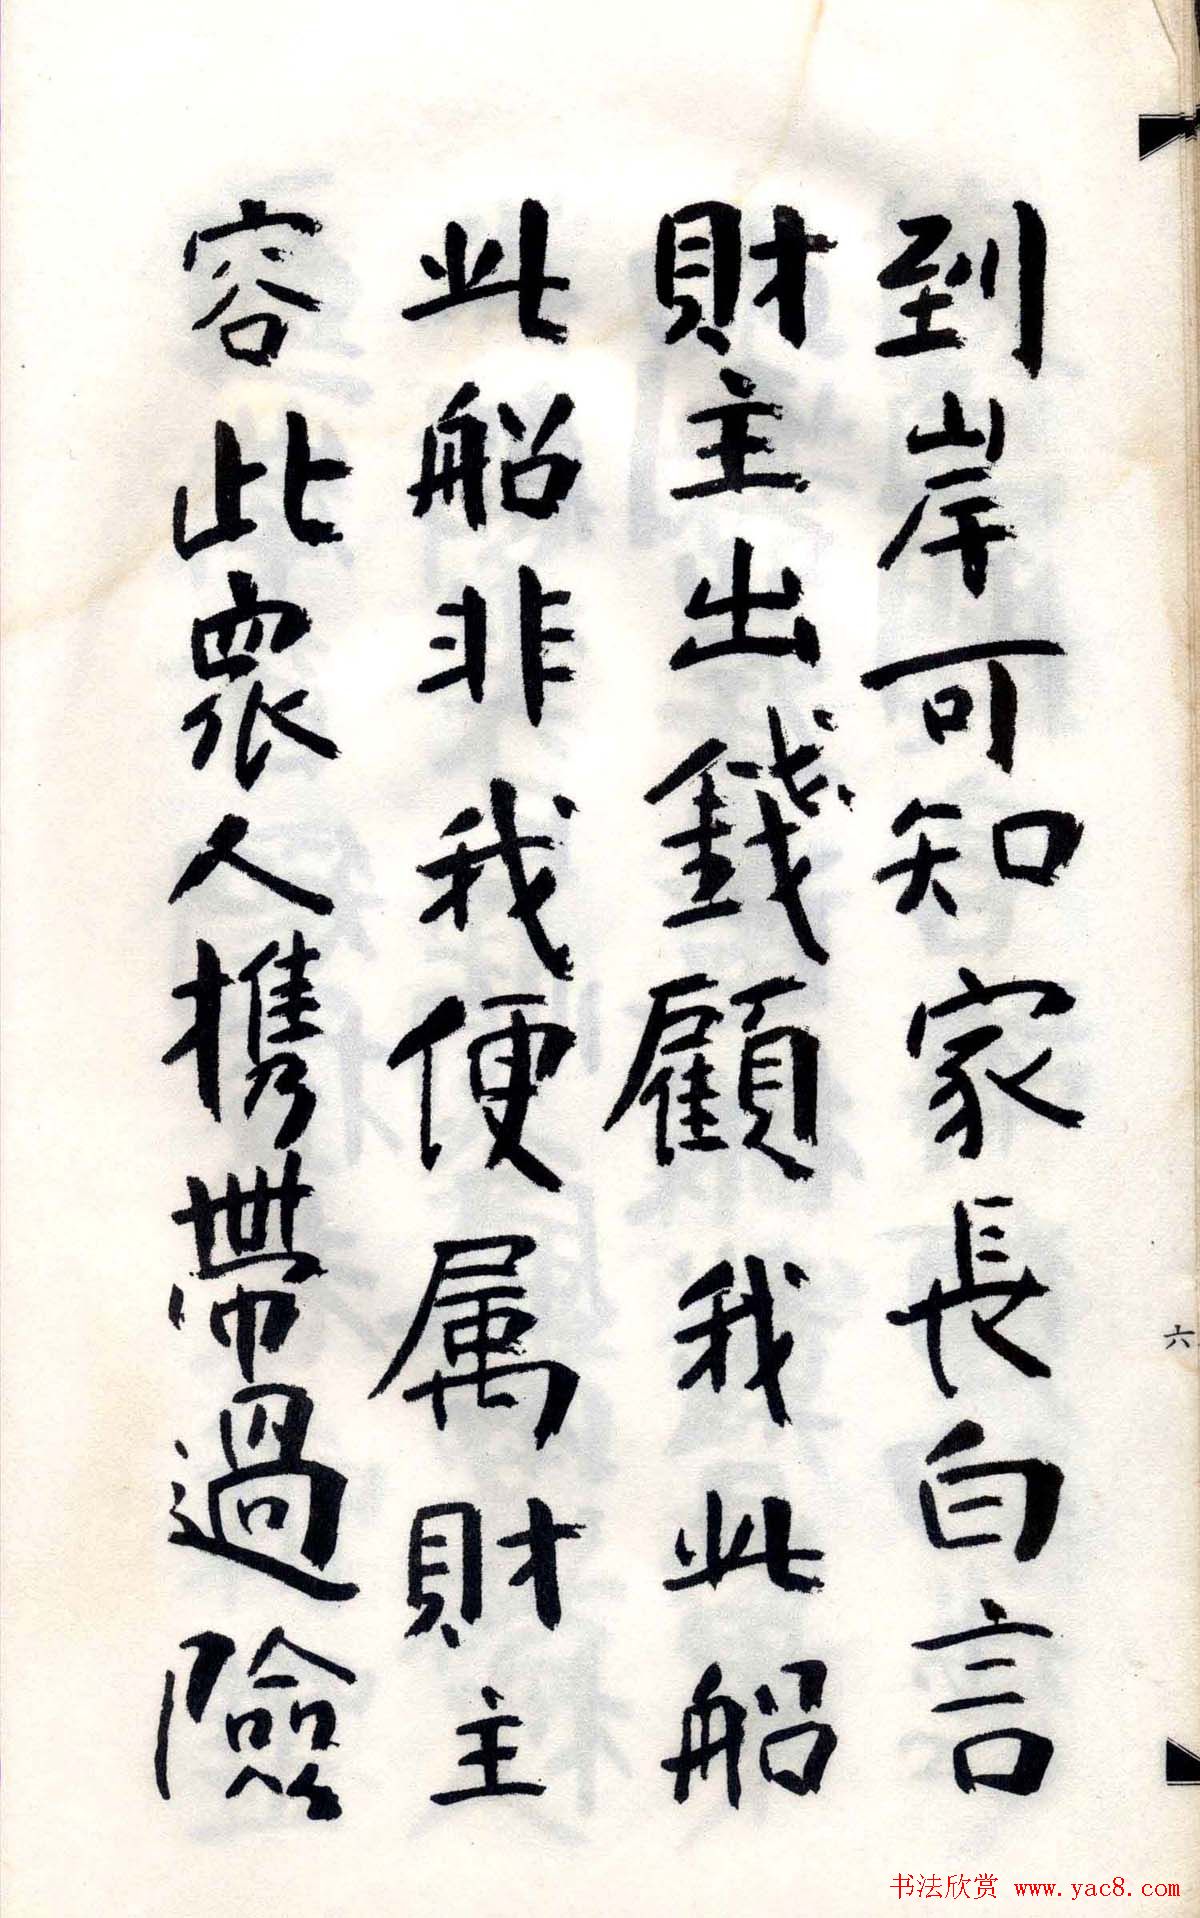 到岸可知家長白言
財主出錢顧我此船
此船非我便属財主
容此眾人携帶過險
六
书法欣赏 www.yac8.com